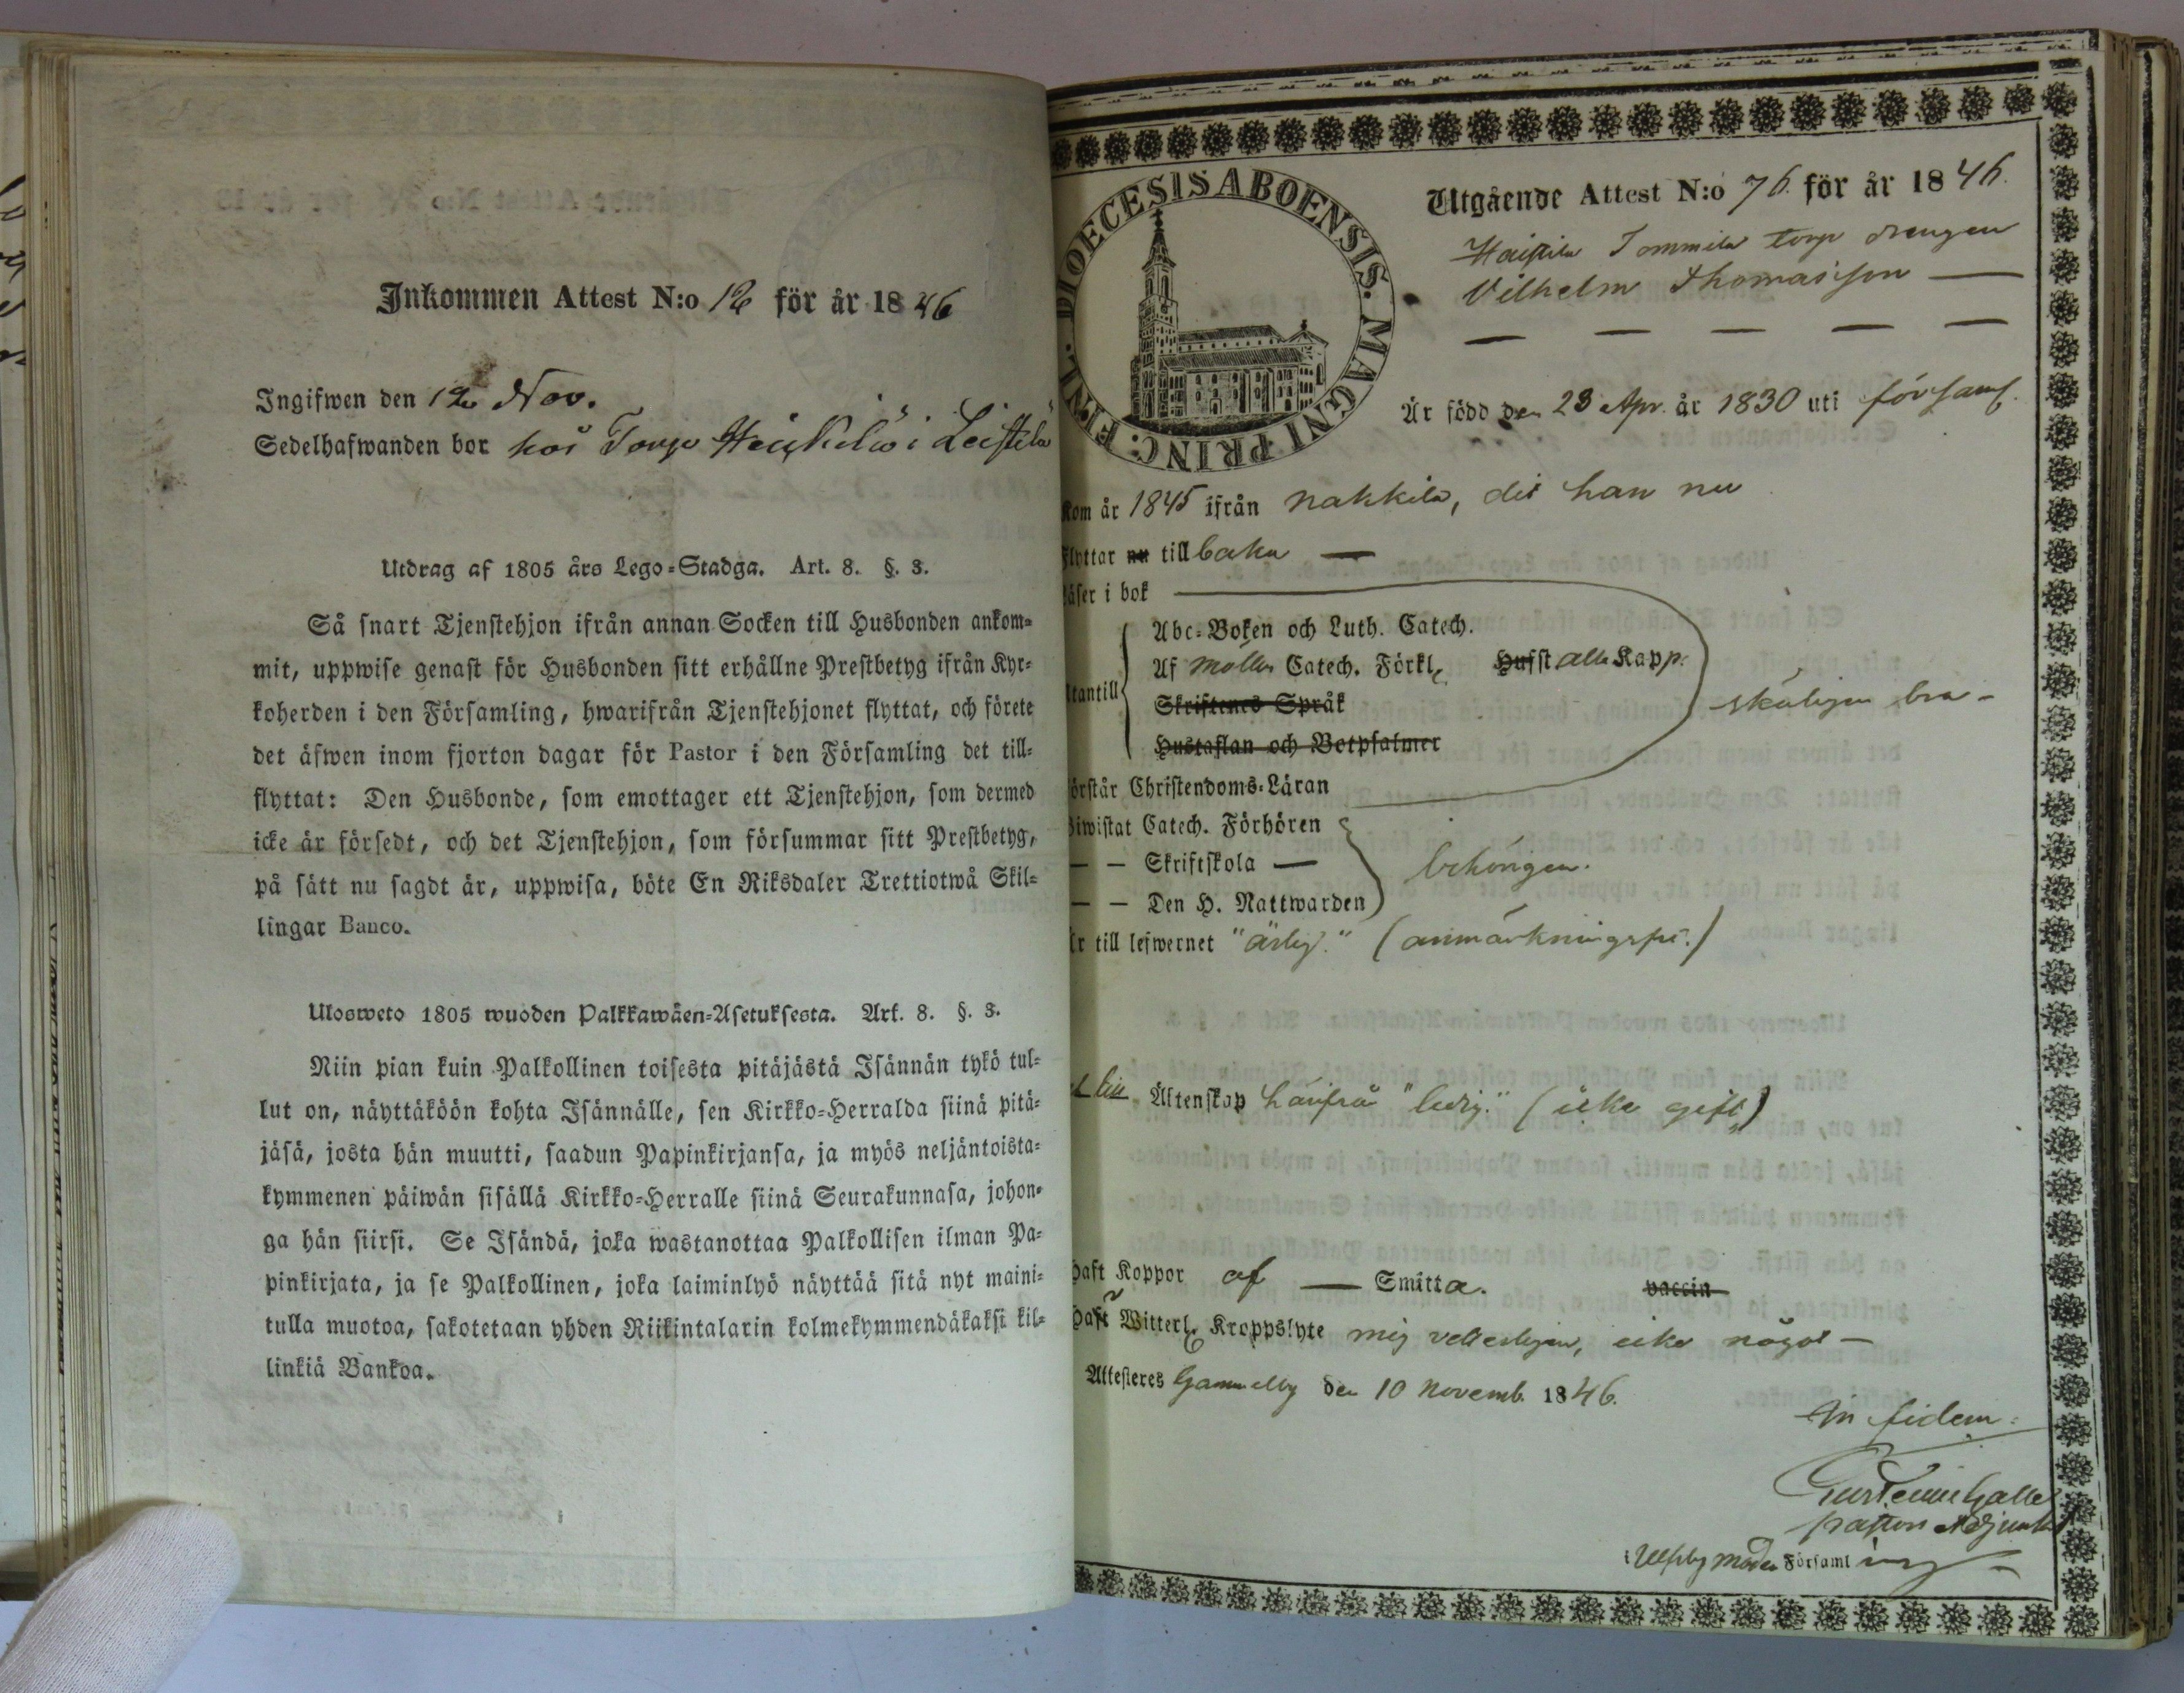 Inkommen Attest N:o 12 för år 1846
Ingifwen den 12 Nov.
Sedelhafwanden bor hos Torp Heikkilä i Leistilä
Utdrag af 1805 års Lego-Stadga. Art. 8. §. 3.
Så snart Tjenstehjon ifrån annan Socken till Husbonden ankom-
mit, uppwise genast för Husbonden sitt erhållne Prestbetyg ifrån Kyr-
koherden i den Församling, hwarifrån Tjenstehjonet flyttat, och förete
det äfwen inom fjorton dagar för Pastor i den Församling det till-
flyttat: Den Husbonde, som emottager ett Tjenstehjon, som dermed
icke är försedt, och det Tjenstehjon, som försummar sitt Prestbetyg,
på sätt nu sagdt är, uppwisa, böte En Riksdaler Trettiotwå Skil-
lingar Banco.
Ulosweto 1805 wuoden Palkkawäen-Asetuksesta. Art. 8. §. 3.
Niin pian kuin Palkollinen toisesta pitäjästä Isännän tykö tul-
lut on, näyttäköön kohta Isännälle, sen Kirkko-Herralda siinä pitä-
jäsä, josta hän muutti, saadun Papinkirjansa, ja myös neljäntoista-
kymmenen päiwän sisällä Kirkko-Herralle siinä Seurakunnasa, johon-
ga hän siirsi. Se Isändä, joka wastanottaa Palkollisen ilman Pa-
pinkirjata, ja se Palkollinen, joka laiminlyö näyttää sitä nyt maini-
tulla muotoa, sakotetaan yhden Riikintalarin kolmekymmendäkaksi kil-
linkiä Bankoa.
DIOECESIS ABOENSIS. MAGNI PRINC. FINL.
Utgående Attest N:o 76. för år 1846.
Haistila Tommila torp drengen
Vilhelm Thomasson —
— — — — —
Är född den 23 Apr. år 1830 uti församl.
Kom år 1845 ifrån Nakkila, dit han nu
flyttar nu tillbaka —
läser i bok
Abc-Boken och Luth. Catech.
Af Möllers Catech. Förkl. Husst alla Kapp.
utantill
Skriftenes Språk
skäligen bra —
Hustaflan och Botpsalmer
Förstår Christendoms-Läran
Biwistat Catech. Förhören
— — Skriftskola — behörigen.
— — Den H. Nattwarden
Är till lefwernet "ärlig." (anmärkningsfri.)
till Äktenskap härifrån "ledig." (icke gift)
Haft Koppor af — Smitta. vaccin
Haft Witterl. Kroppslyte mig vetterligen, icke något —
Attesteres Gammelby den 10 Novemb. 1846.
In fidem:
pastors Adjunkt
i Ulfsby Moder Församling